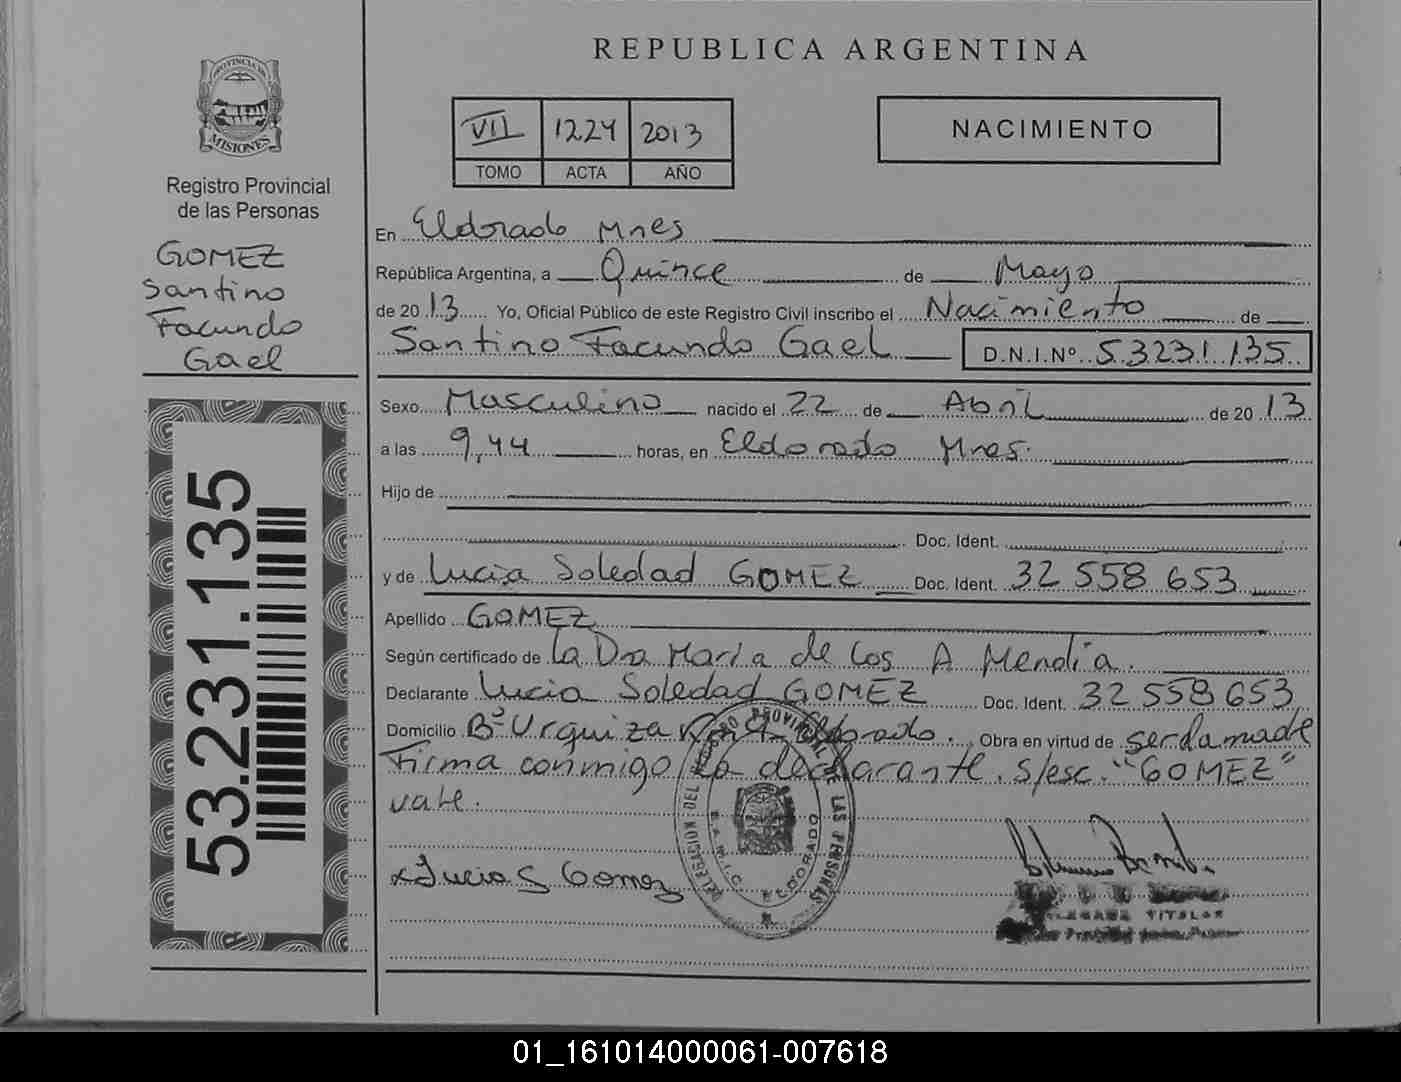 REPUBLICA ARGENTINA
PROVINCIA DE
MISIONES
Registro Provincial
de las Personas
VII 1224 2013
TOMO ACTA AÑO
NACIMIENTO
GOMEZ
Santino
Facundo
Gael
53.231.135
En Eldorado Mnes
República Argentina, a Quince de Mayo
de 2013 Yo, Oficial Público de este Registro Civil inscribo el Nacimiento de
Santino Facundo Gael D.N.I.Nº 53231135
Sexo Masculino nacido el 22 de Abril de 2013
a las 9,44 horas, en Eldorado Mnes.
Hijo de
Doc. Ident.
y de Lucia Soledad GOMEZ Doc. Ident. 32 558 653
Apellido GOMEZ
Según certificado de la Dra Maria de los A Mendia.
Declarante Lucia Soledad GOMEZ Doc. Ident. 32 558 653
Domicilio Bº Urquiza Eldorado. Obra en virtud de ser la madre
Firma conmigo la declarante. s/esc. "GOMEZ"
vale.
Lucia S Gomez
DELEGACION DEL REGISTRO PROVINCIAL DE LAS PERSONAS
ELDORADO
TITULAR
01_161014000061-007618